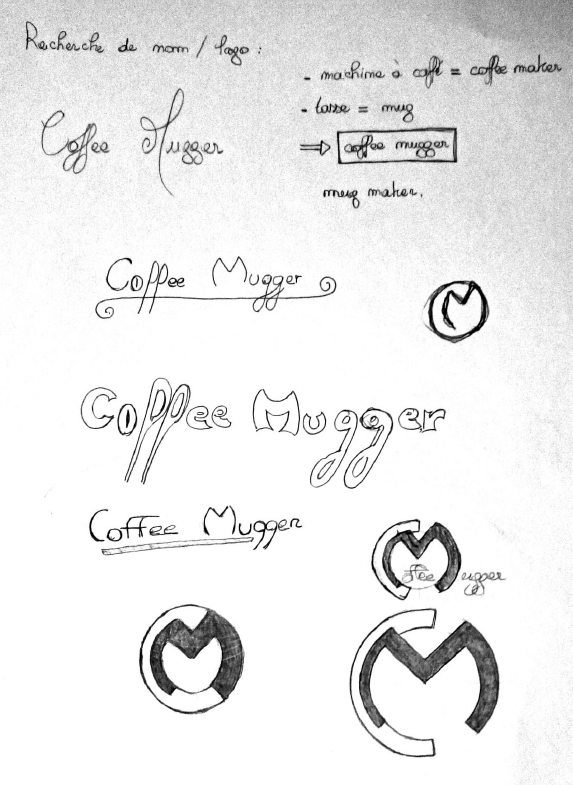 Recherche de nom / logo :
- machine à café = coffee maker
- tasse = mug
⇒ coffee mugger
mug maker.
Coffee Mugger
Coffee Mugger
CM
Coffee Mugger
Coffee Mugger
CM
ffee ugger
CM
CM